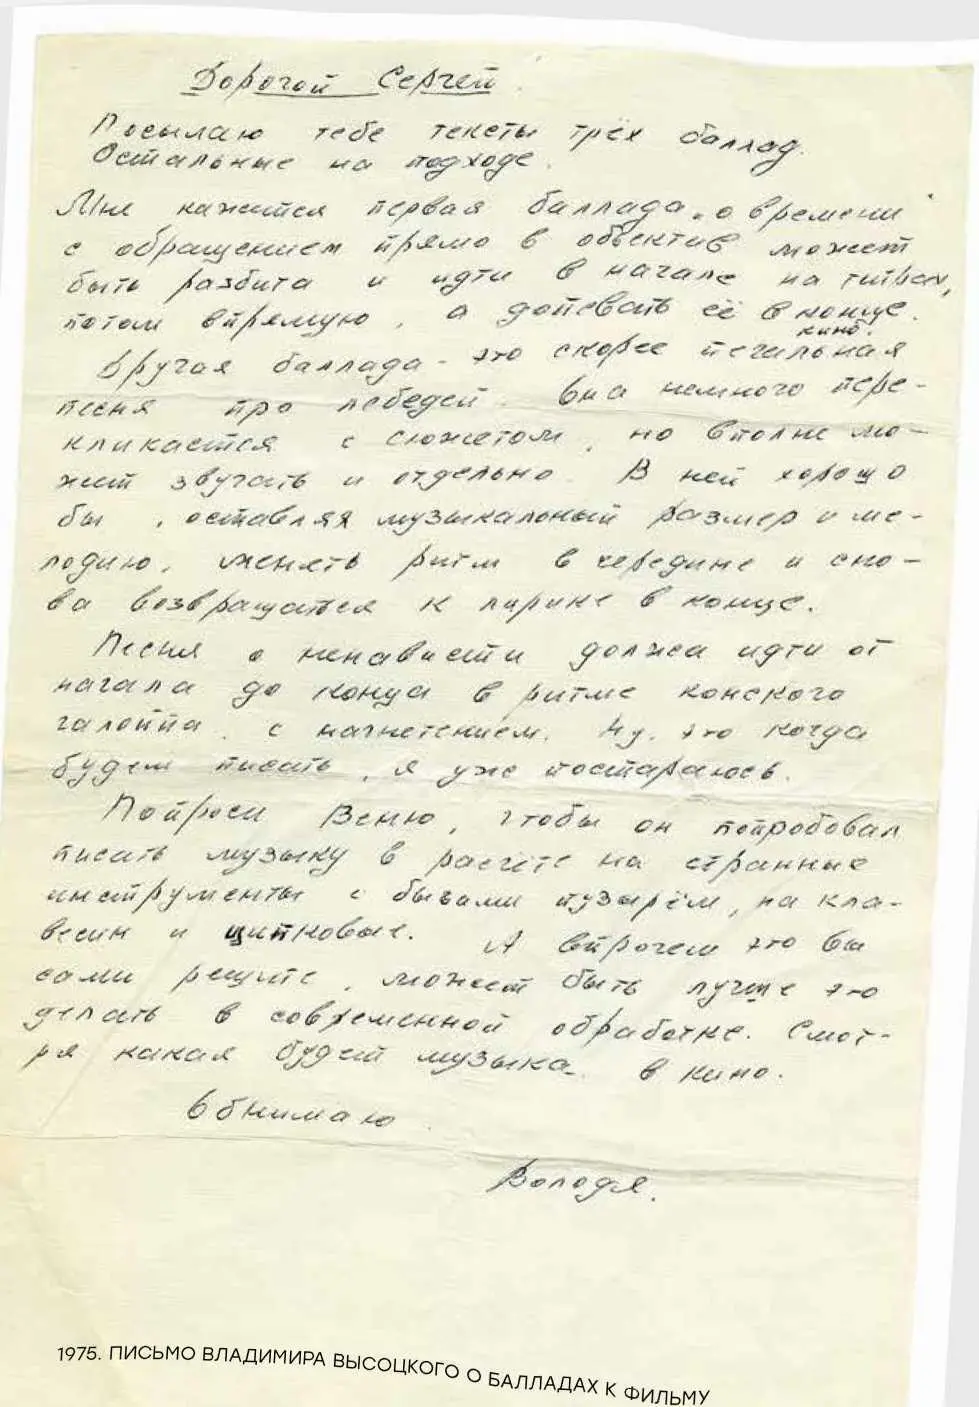 Дорогой Сергей
Посылаю тебе тексты трёх баллад.
Остальные на подходе.
Мне кажется первая баллада „о времени"
с обращением прямо в объектив может
быть разбита и идти в начале на титрах,
потом впрямую, а допевать её в конце
кино.
Другая баллада - это скорее печальная
песня про лебедей. Она немного пере-
кликается с сюжетом, но вполне мо-
жет звучать и отдельно. В ней хорошо
бы, оставляя музыкальный размер и ме-
лодию, менять ритм в середине и сно-
ва возвращаться к лирике в конце.
Песня о ненависти должа идти от
начала до конца в ритме конского
галоппа, с нагнетением. Ну, это когда
будем писать, я уже постараюсь.
Попроси Веню, чтобы он попробовал
писать музыку в расчёте на странные
инструменты с бычьим пузырём, на кла-
весин и щипковые. А впрочем это вы
сами решите, может быть лучше это
делать в современной обработке. Смот-
ря какая будет музыка в кино.
Обнимаю
Володя.
1975. ПИСЬМО ВЛАДИМИРА ВЫСОЦКОГО О БАЛЛАДАХ К ФИЛЬМУ